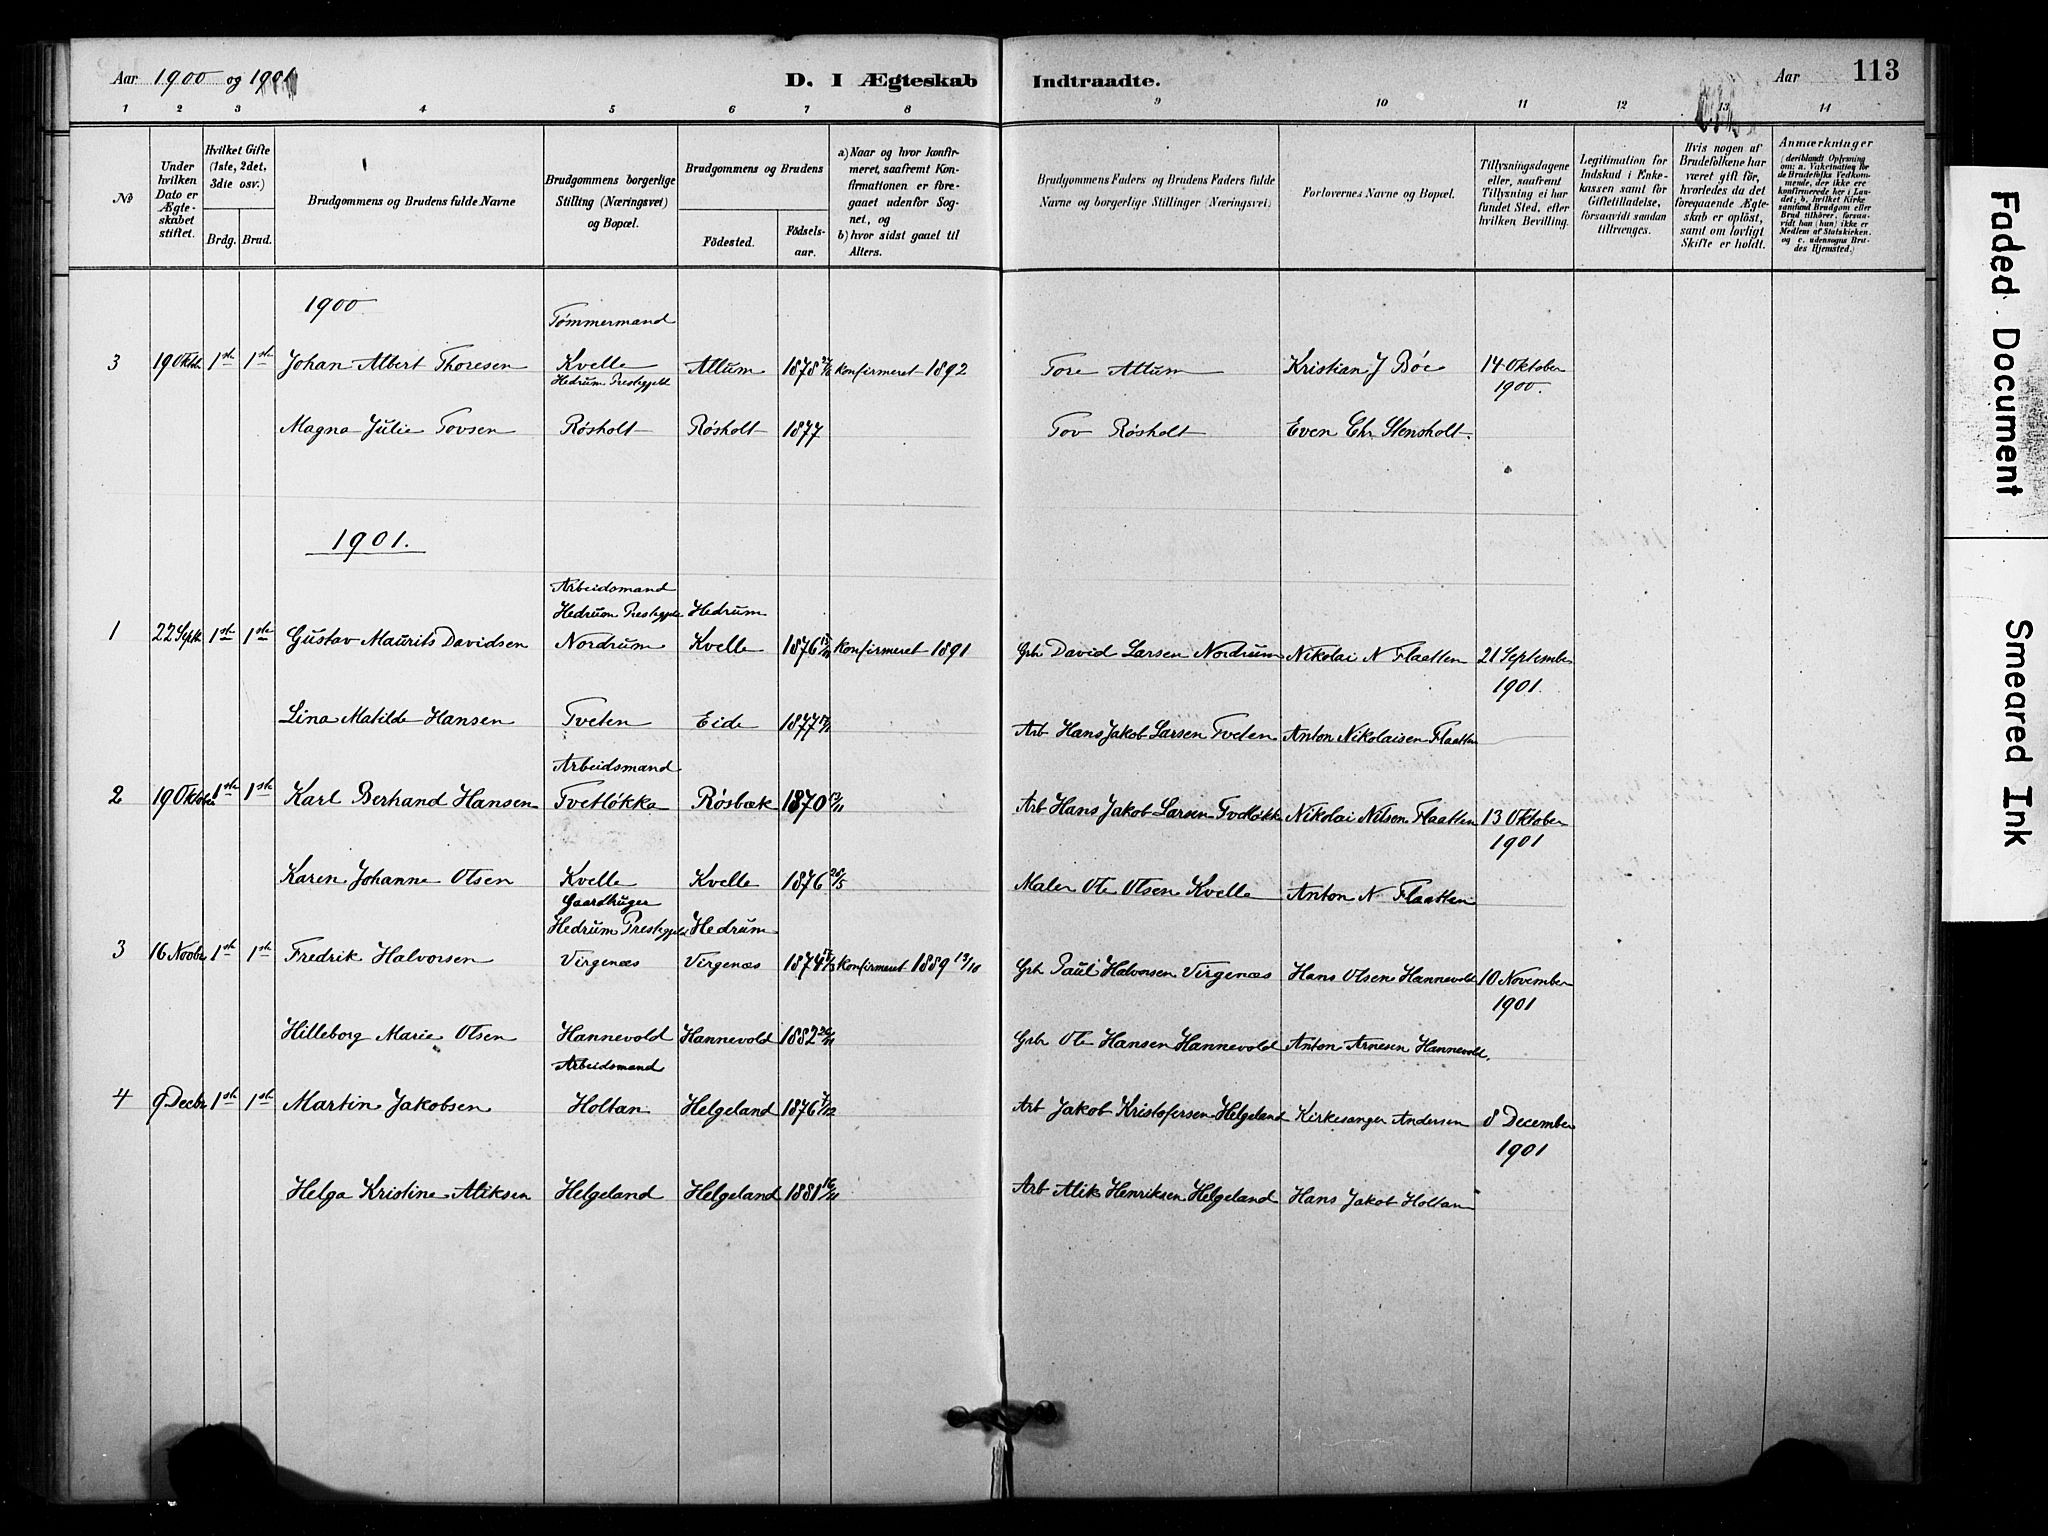 Aar 1900 og 1901 D. I Ægteskab Indtraadte. Aar 113
1 2 3 4 5 6 7 8 9 10 11 12 13 14
No
Under hvilken Dato er Ægteskabet stiftet.
Hvilket Gifte (1ste, 2det, 3die osv.)
Brdg. Brud.
Brudgommens og Brudens fulde Navne
Brudgommens borgerlige Stilling (Næringsvei) og Bopæl.
Brudgommens og Brudens
Födested. Födsels-aar.
a) Naar og hvor konfirmeret, saafremt Konfirmationen er foregaaet udenfor Sognet, og
b) hvor sidst gaaet til Alters.
Brudgommens Faders og Brudens Faders fulde Navne og borgerlige Stillinger (Næringsvei)
Forlovernes Navne og Bopæl.
Tillysningsdagene eller, saafremt Tillysning ei har fundet Sted, efter hvilken Bevilling.
Legitimation for Indskud i Enkekassen samt for Giftetilladelse, forsaavidt saadan tiltrænges.
Hvis nogen af Brudefolkene har været gift før, hvorledes da det foregaaende Ægteskab er oplöst, samt om lovligt Skifte er holdt.
Anmærkninger
(deriblandt Oplysning om: a. Vakcination for de Brudefolks Vedkommende, der ikke ere konfirmerede her i Landet; b. hvilket Kirkesamfund Brudgom eller Brud tilhører, forsaavidt han (hun) ikke er Medlem af Statskirken, og c. udensogns Brudes Hjemsted.)
1900
Tömmermand
3 19 Oktbr 1ste 1ste Johan Albert Thoresen Kvelle Allum 1878 konfirmeret 1892 Tore Allum Kristian J Böe 14 Oktober
Hedrum Prestegjeld 1900.
Magna Julie Tovsen Rösholt Rösholt 1877 Tov Rösholt Even Chr Stensholt.
1901.
Arbeidsmand
Hedrum Prestegjeld Hedrum
1 22 Septb 1ste 1ste Gustav Maurits Davidsen Nordrum Kvelle 1876 konfirmeret 1891 Grbr David Larsen Nordrum Nikolai N Flaatten 21 September
1901.
Lina Matilde Hansen Tveten Eide 1877 Arb Hans Jakob Larsen Tveten Anton Nikolaisen Flaatten
Arbeidsmand
2 19 Oktober 1ste 1ste Karl Berhand Hansen Tvetlökka Rösbæk 1870 Arb Hans Jakob Larsen Tvetlökk Nikolai Nilsen Flaatten 13 Oktober
1901
Karen Johanne Olsen Kvelle Kvelle 1876 Maler Ole Olsen Kvelle Anton N Flaatten
Gaardbruger
Hedrum Prestegjeld Hedrum
3 16 Novbr 1ste 1ste Fredrik Halvorsen Virgenæs Virgenæs 1874 konfirmeret 1889 13/10 Grbr Paul Halvorsen Virgenæs Hans Olsen Hannevold 10 November
1901
Hilleborg Marie Olsen Hannevold Hannevold 1882 Grbr Ole Hansen Hannevold Anton Arnesen Hannevold.
Arbeidsmand
4 9 Decbr 1ste 1ste Martin Jakobsen Holtan Helgeland 1876 Arb Jakob Kristofersen Helgeland Kirkesanger Andersen 8 December
1901
Helga Kristine Aliksen Helgeland Helgeland 1881 Arb Alik Henriksen Helgeland Hans Jakob Holtan
Faded Document
Smeared Ink